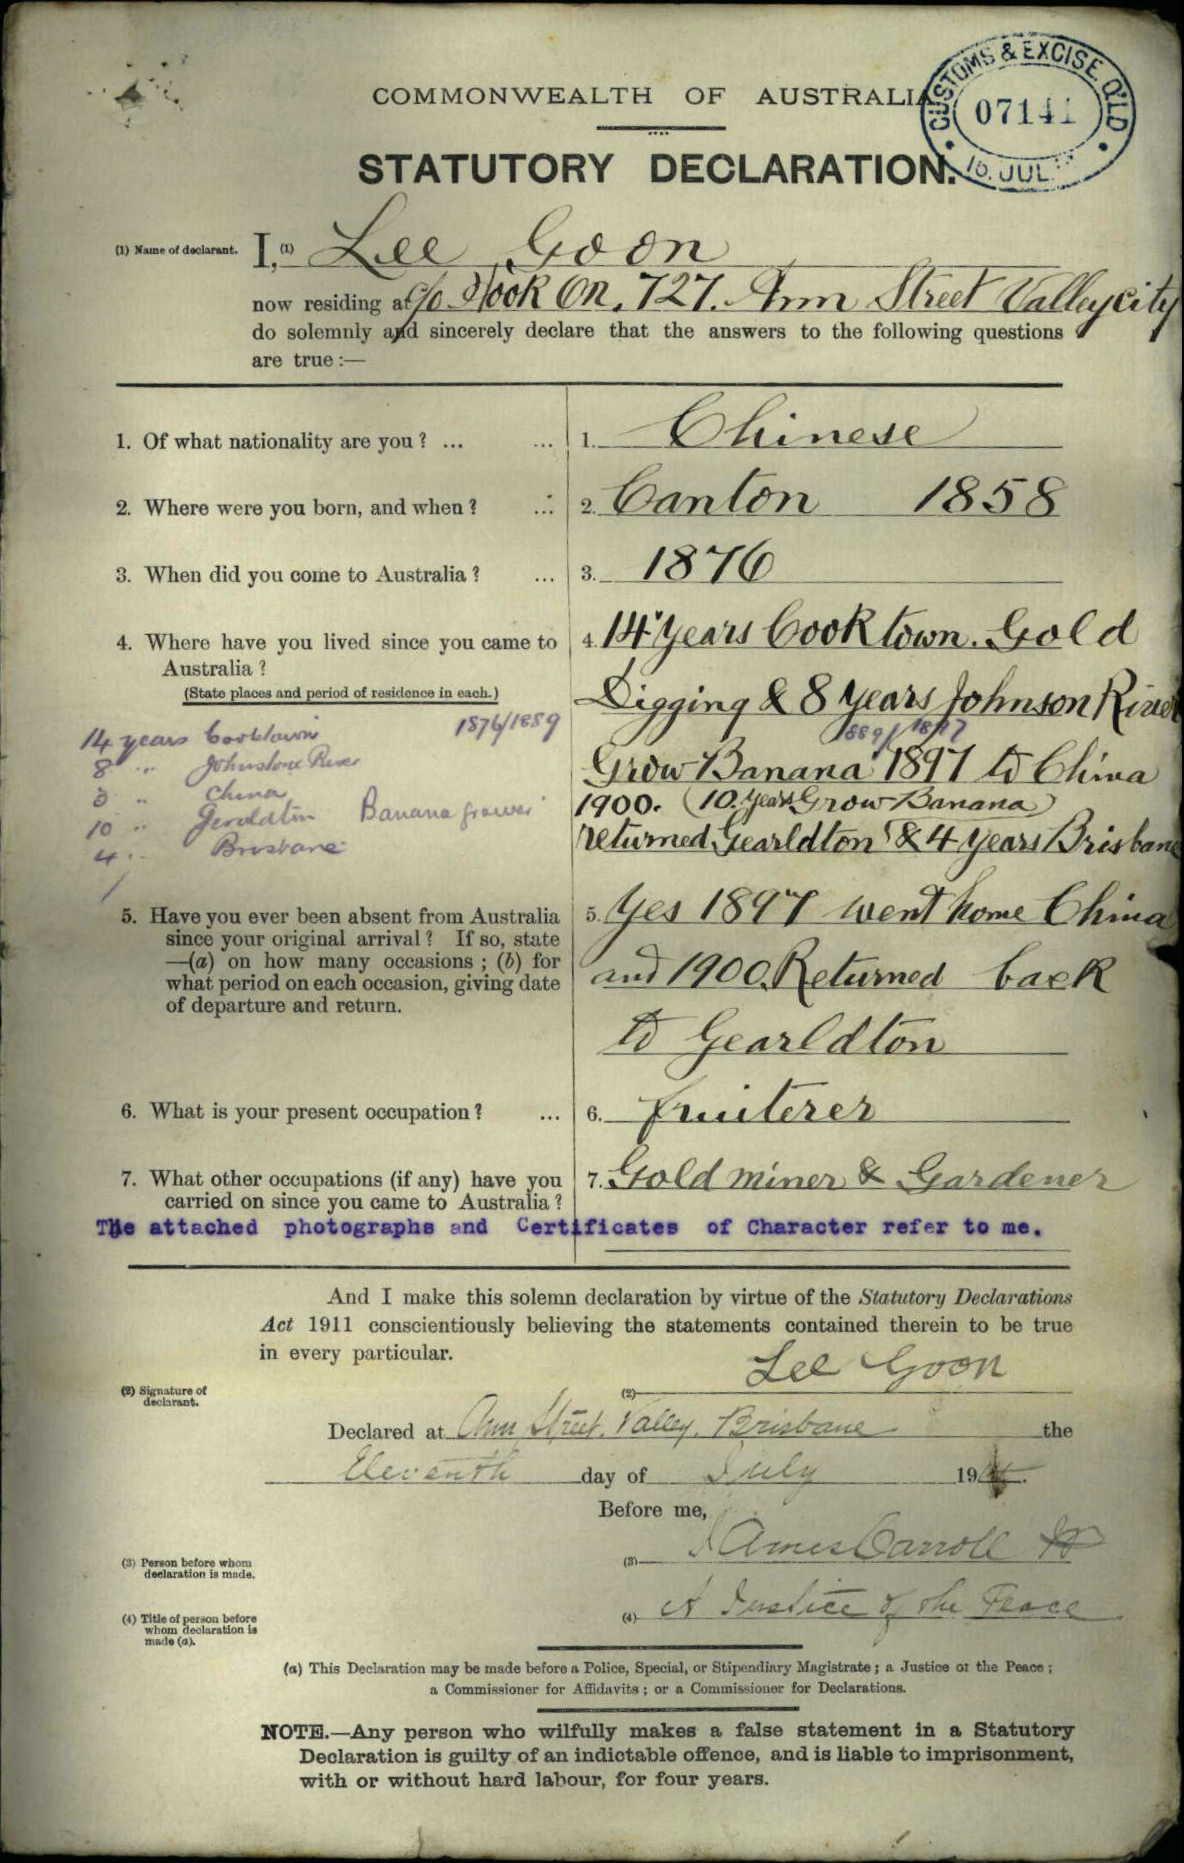 COMMONWEALTH OF AUSTRALIA
CUSTOMS & EXCISE. Q'LD
07141
15. JUL.
STATUTORY DECLARATION.
(1) Name of declarant. I, (1) Lee Goon
now residing at c/o Hook On, 727. Ann Street Valley City
do solemnly and sincerely declare that the answers to the following questions
are true :—
1. Of what nationality are you ? ... ... 1. Chinese
2. Where were you born, and when ? ... 2. Canton 1858
3. When did you come to Australia ? ... 3. 1876
4. Where have you lived since you came to 4. 14 years Cooktown. Gold
Australia ?
(State places and period of residence in each.) Digging & 8 years Johnson River
14 years Cooktown 1876/1889
8 " Johnstone River 1889/1897
Grow Banana 1897 to China
3 " China
1900. (10. years Grow Banana)
10 " Geraldton Banana grower
returned Gearldton & 4 years Brisbane
4 " Brisbane
5. Have you ever been absent from Australia 5. Yes 1897 went home China
since your original arrival ? If so, state
—(a) on how many occasions ; (b) for and 1900. Returned back
what period on each occasion, giving date
of departure and return.
to Gearldton
6. What is your present occupation ? ... 6. fruiterer
7. What other occupations (if any) have you 7. Gold miner & Gardener
carried on since you came to Australia ?
The attached photographs and Certificates of Character refer to me.
And I make this solemn declaration by virtue of the Statutory Declarations
Act 1911 conscientiously believing the statements contained therein to be true
in every particular.
(2) Signature of (2) Lee Goon
declarant.
Declared at Ann Street. Valley. Brisbane the
Eleventh day of July 19
Before me,
(3) Person before whom (3) James Carroll JP
declaration is made.
(4) Title of person before (4) A Justice of the Peace
whom declaration is
made (a).
(a) This Declaration may be made before a Police, Special, or Stipendiary Magistrate ; a Justice of the Peace ;
a Commissioner for Affidavits ; or a Commissioner for Declarations.
NOTE.—Any person who wilfully makes a false statement in a Statutory
Declaration is guilty of an indictable offence, and is liable to imprisonment,
with or without hard labour, for four years.